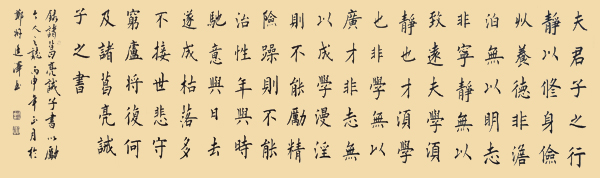 夫君子之行
靜以修身儉
以養德非澹
泊無以明志
非寧靜無以
致遠夫學須
靜也才須學
也非學無以
廣才非志無
以成學漫淫
則不能勵精
險躁則不能
治性年與時
馳意與日去
遂成枯落多
不接世悲守
窮廬將復何
及諸葛亮誡
子之書
錄諸葛亮誡子書以勵
丙申年正月於
鄭州